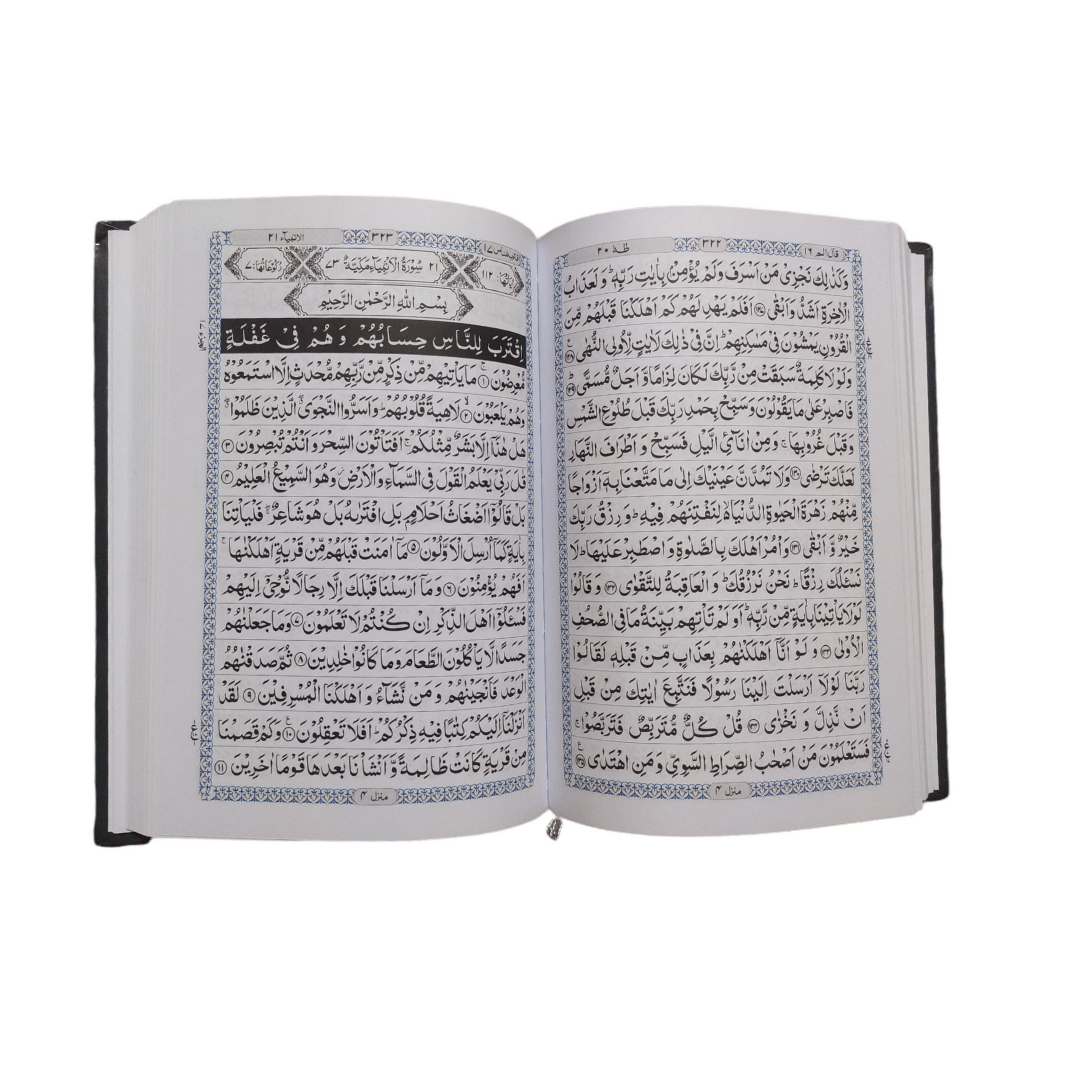 قال الم ١٦
٣٢٢
طٰهٰ ٢٠
وَكَذٰلِكَ نَجْزِىْ مَنْ اَسْرَفَ وَلَمْ يُؤْمِنْۢ بِاٰيٰتِ رَبِّهٖ ؕ وَلَعَذَابُ
الْاٰخِرَةِ اَشَدُّ وَاَبْقٰى ﴿۱۲۷﴾ اَفَلَمْ يَهْدِ لَهُمْ كَمْ اَهْلَكْنَا قَبْلَهُمْ مِّنَ
الْقُرُوْنِ يَمْشُوْنَ فِىْ مَسٰكِنِهِمْ ؕ اِنَّ فِىْ ذٰلِكَ لَاٰيٰتٍ لِّاُولِى النُّهٰى ﴿۱۲۸﴾
وَلَوْلَا كَلِمَةٌ سَبَقَتْ مِنْ رَّبِّكَ لَكَانَ لِزَامًا وَّ اَجَلٌ مُّسَمًّى ﴿۱۲۹﴾
فَاصْبِرْ عَلٰى مَا يَقُوْلُوْنَ وَسَبِّحْ بِحَمْدِ رَبِّكَ قَبْلَ طُلُوْعِ الشَّمْسِ
وَقَبْلَ غُرُوْبِهَا ۚ وَمِنْ اٰنَآئِ الَّيْلِ فَسَبِّحْ وَ اَطْرَافَ النَّهَارِ
لَعَلَّكَ تَرْضٰى ﴿۱۳۰﴾ وَلَا تَمُدَّنَّ عَيْنَيْكَ اِلٰى مَا مَتَّعْنَا بِهٖۤ اَزْوَاجًا
مِّنْهُمْ زَهْرَةَ الْحَيٰوةِ الدُّنْيَا ۙ لِنَفْتِنَهُمْ فِيْهِ ؕ وَرِزْقُ رَبِّكَ
خَيْرٌ وَّ اَبْقٰى ﴿۱۳۱﴾ وَاْمُرْ اَهْلَكَ بِالصَّلٰوةِ وَ اصْطَبِرْ عَلَيْهَا ؕ لَا
نَسْئَلُكَ رِزْقًا ؕ نَحْنُ نَرْزُقُكَ ؕ وَ الْعَاقِبَةُ لِلتَّقْوٰى ﴿۱۳۲﴾ وَ قَالُوْا
لَوْلَا يَاْتِيْنَا بِاٰيَةٍ مِّنْ رَّبِّهٖ ؕ اَوَ لَمْ تَاْتِهِمْ بَيِّنَةُ مَا فِى الصُّحُفِ
الْاُوْلٰى ﴿۱۳۳﴾ وَ لَوْ اَنَّاۤ اَهْلَكْنٰهُمْ بِعَذَابٍ مِّنْ قَبْلِهٖ لَقَالُوْا
رَبَّنَا لَوْلَاۤ اَرْسَلْتَ اِلَيْنَا رَسُوْلًا فَنَتَّبِعَ اٰيٰتِكَ مِنْ قَبْلِ
اَنْ نَّذِلَّ وَ نَخْزٰى ﴿۱۳۴﴾ قُلْ كُلٌّ مُّتَرَبِّصٌ فَتَرَبَّصُوْا ۚ
فَسَتَعْلَمُوْنَ مَنْ اَصْحٰبُ الصِّرَاطِ السَّوِىِّ وَ مَنِ اهْتَدٰى ﴿۱۳۵﴾
منزل ۴
٣٢٣
الانبیآء ٢١
٢١ سُوْرَةُ الْاَنْبِيَآءِ مَكِّيَّةٌ ٧٣
اٰيَاتُهَا: ١١٢
رُكُوْعَاتُهَا: ٧
بِسْمِ اللّٰهِ الرَّحْمٰنِ الرَّحِيْمِ
اِقْتَرَبَ لِلنَّاسِ حِسَابُهُمْ وَ هُمْ فِىْ غَفْلَةٍ
مُّعْرِضُوْنَ ﴿۱﴾ مَا يَاْتِيْهِمْ مِّنْ ذِكْرٍ مِّنْ رَّبِّهِمْ مُّحْدَثٍ اِلَّا اسْتَمَعُوْهُ
وَهُمْ يَلْعَبُوْنَ ﴿۲﴾ لَاهِيَةً قُلُوْبُهُمْ ؕ وَاَسَرُّوا النَّجْوَى الَّذِيْنَ ظَلَمُوْا
هَلْ هٰذَاۤ اِلَّا بَشَرٌ مِّثْلُكُمْ ۚ اَفَتَاْتُوْنَ السِّحْرَ وَ اَنْتُمْ تُبْصِرُوْنَ ﴿۳﴾
قٰلَ رَبِّىْ يَعْلَمُ الْقَوْلَ فِى السَّمَآءِ وَ الْاَرْضِ وَهُوَ السَّمِيْعُ الْعَلِيْمُ ﴿۴﴾
بَلْ قَالُوْۤا اَضْغَاثُ اَحْلَامٍۭ بَلِ افْتَرٰىهُ بَلْ هُوَ شَاعِرٌ ۚ فَلْيَاْتِنَا
بِاٰيَةٍ كَمَاۤ اُرْسِلَ الْاَوَّلُوْنَ ﴿۵﴾ مَاۤ اٰمَنَتْ قَبْلَهُمْ مِّنْ قَرْيَةٍ اَهْلَكْنٰهَا ۚ
اَفَهُمْ يُؤْمِنُوْنَ ﴿۶﴾ وَ مَاۤ اَرْسَلْنَا قَبْلَكَ اِلَّا رِجَالًا نُّوْحِىْۤ اِلَيْهِمْ
فَسْئَلُوْۤا اَهْلَ الذِّكْرِ اِنْ كُنْتُمْ لَا تَعْلَمُوْنَ ﴿۷﴾ وَمَا جَعَلْنٰهُمْ
جَسَدًا لَّا يَاْكُلُوْنَ الطَّعَامَ وَمَا كَانُوْا خٰلِدِيْنَ ﴿۸﴾ ثُمَّ صَدَقْنٰهُمُ
الْوَعْدَ فَاَنْجَيْنٰهُمْ وَ مَنْ نَّشَآءُ وَ اَهْلَكْنَا الْمُسْرِفِيْنَ ﴿۹﴾ لَقَدْ
اَنْزَلْنَاۤ اِلَيْكُمْ كِتٰبًا فِيْهِ ذِكْرُكُمْ ؕ اَفَلَا تَعْقِلُوْنَ ﴿۱۰﴾ وَكَمْ قَصَمْنَا
مِنْ قَرْيَةٍ كَانَتْ ظَالِمَةً وَّ اَنْشَاْنَا بَعْدَهَا قَوْمًا اٰخَرِيْنَ ﴿۱۱﴾
منزل ۴